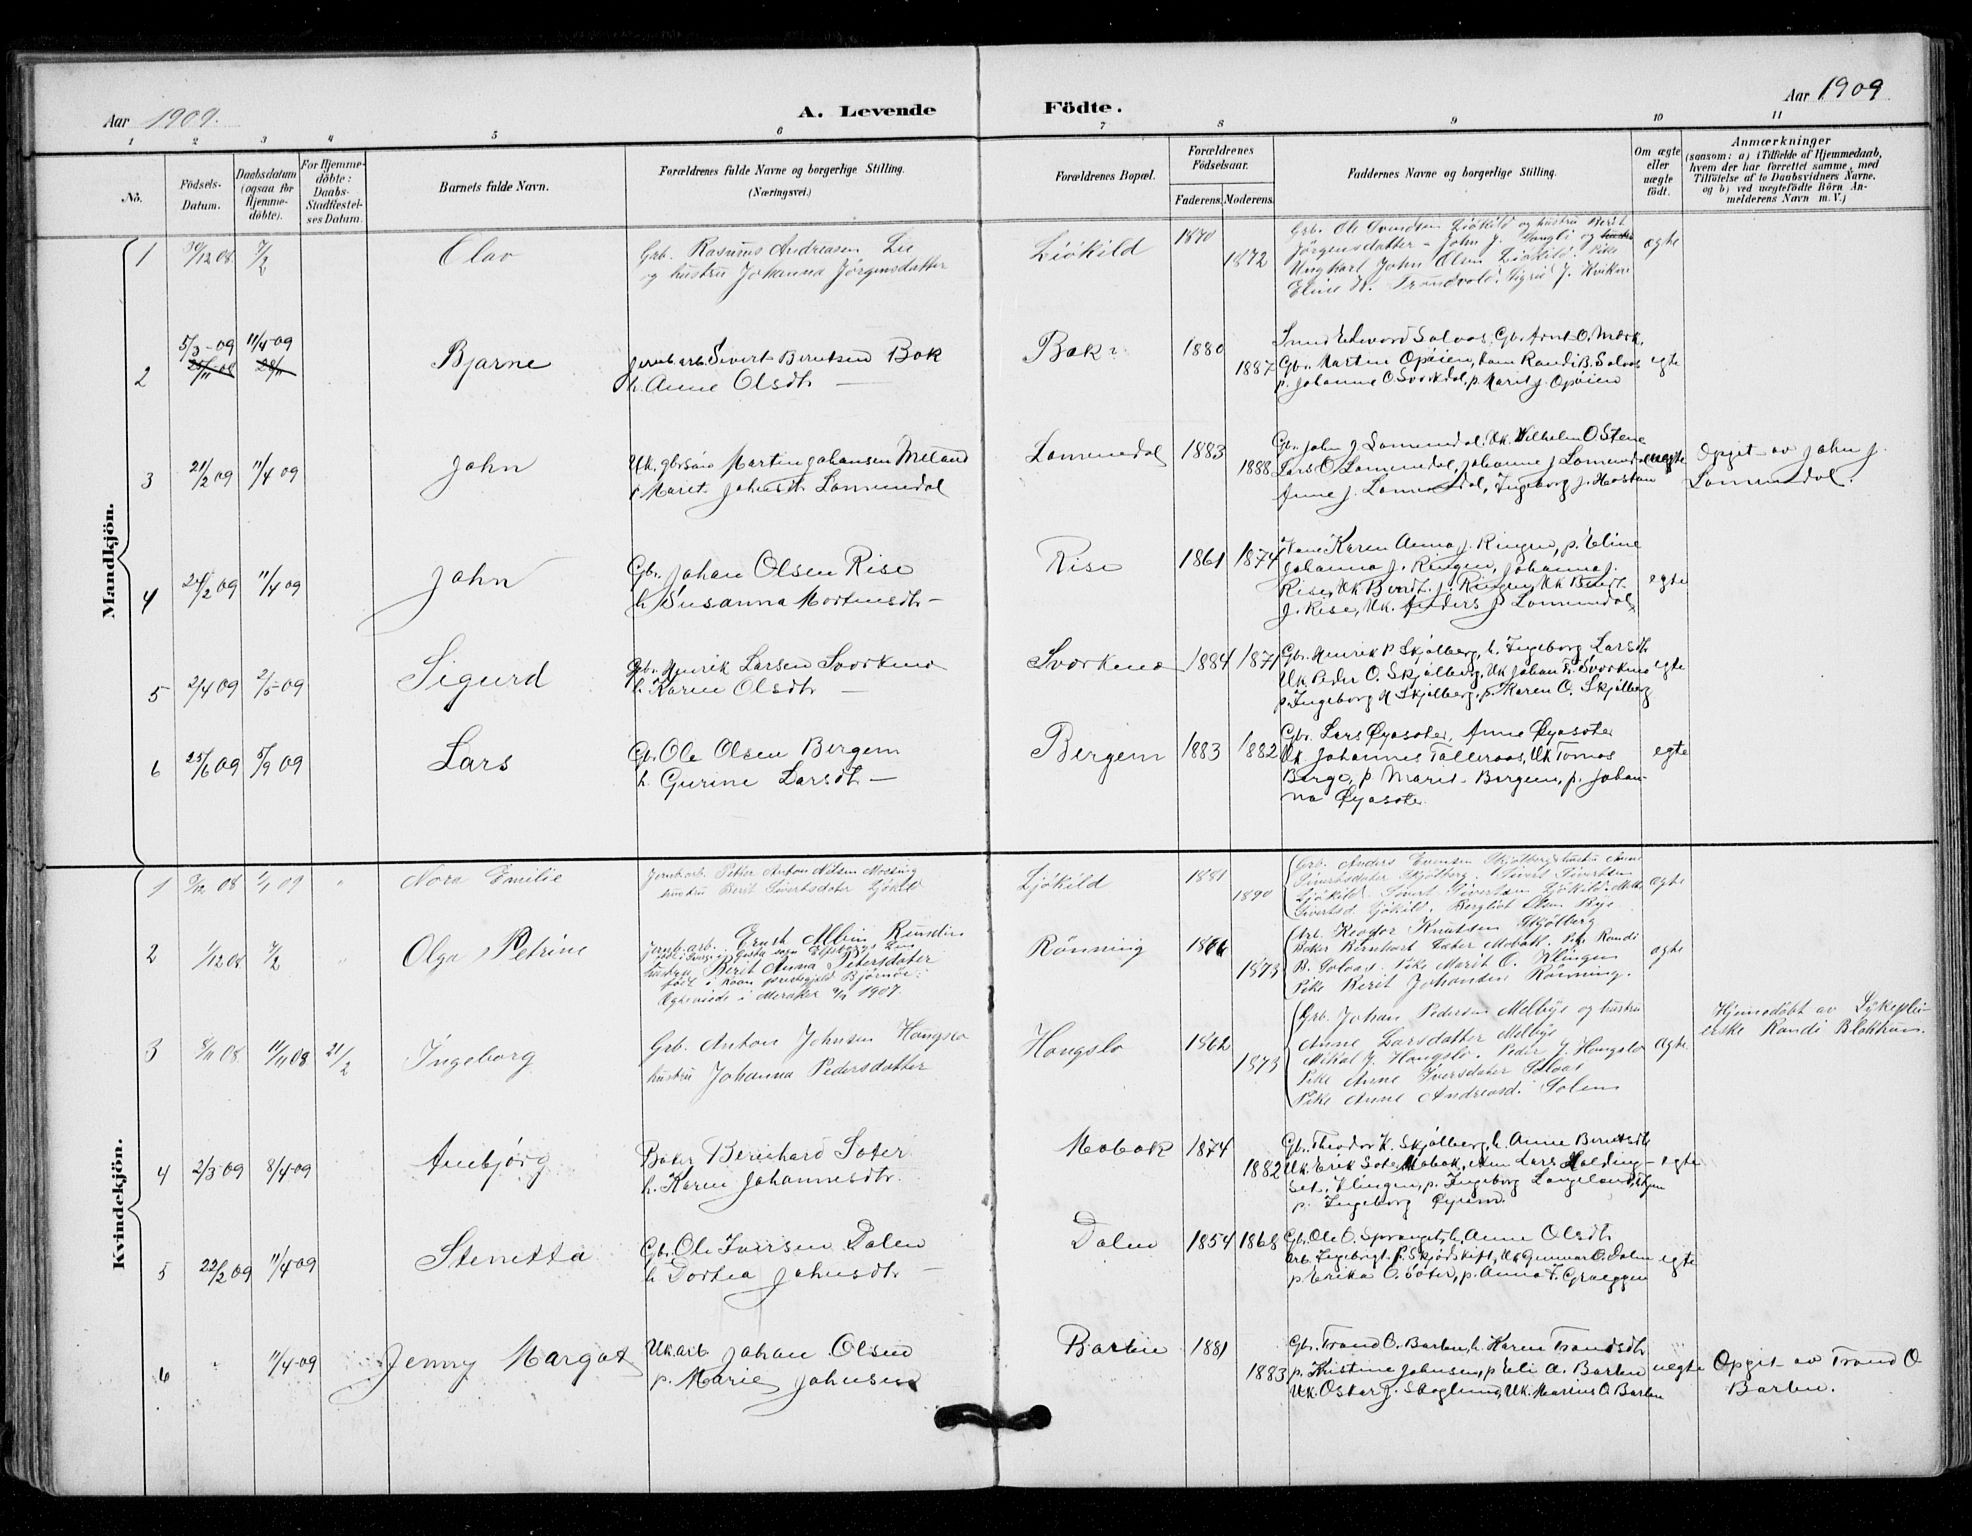 Aar 1909.
A. Levende
Födte.
Aar 1909
1 2 3 4 5 6 7 8 9 10 11
No.
Födsels-Datum.
Daabsdatum (ogsaa for Hjemmedöbte).
For Hjemmedöbte: Daabs-Stadfestelses Datum.
Barnets fulde Navn.
Forældrenes fulde Navne og borgerlige Stilling. (Næringsvei.)
Forældrenes Bopæl.
Forældrenes Födselsaar.
Faderens. Moderens.
Faddernes Navne og borgerlige Stilling.
Om ægte eller uægte födt.
Anmærkninger
(saasom: a) i Tilfælde af Hjemmedaab, hvem der har forrettet samme, med Tilföielse af to Daabsvidners Navne. og b) ved uægtefödte Börn Anmelderens Navn m. V.)
Mandkjön.
1 30/12 08 7/2 Olav
Grb. Rasmus Andreasen Lie
og hustru Johanna Jörgensdatter
Liökild 1870 1872
Grb. Ole Svendsen Liökild og hustru Berit
Jörgensdatter - John J. og
Ungkarl John Olsen Liökild. Pike
Eline K. Trondvold. Sigrid J. Kvikne
egte
2 5/3-09 11/4-09 Bjarne
Jernb.arb. Sivert Berntsen Bak
h. Anne Olsdtr -
Bak 1880 1887
Smed Edvard Solvos, Gb. Arnt O. Mærk,
Gb. Martin Opöien, kone Randi B. Solvos
p. Johanne O Svorkdal, p. Marit J. Opöien
egte
3 21/2 09 11/4 09 John
Uk. gbrsön Martin Johansen Meland
p Marit Johnsdtr Lomundal
Lomundal 1883 1888
Gb. John J Lomundal, Uk. Vilhelm O Stene
Lars O Lomundal, Johanne J Lomundal
Anne J. Lomundal, Ingeborg J. Hostan
uegte
Opgit av John J.
Lomundal.
4 24/2 09 11/4 09 John
Gb. Johan Olsen Rise
h. Susanna Mortensdtr -
Rise 1861 1874
Kone Karen Anna J. Ringen, p. Eline
Johanna J. Ringen, Johanna J.
Rise, Uk Berdt. J. Ringen, Uk Berdt
J. Rise, Uk. Anders J Lomundal
egte
5 2/4 09 2/5-09 Sigurd
Gb. Henrik Larsen Svorkmo
h. Karen Olsdtr -
Svorkmo 1884 1871
Gb. Henrik P Skjölberg, h. Ingeborg Larsdtr
Uk. Peder O. Skjölberg, Uk Johan Fr. Svorkmo
p. Ingeborg H Skjölberg, p. Karen O. Skjölberg
egte
6 25/6 09 5/9 09 Lars
Gb. Ole Olsen Bergem
h. Gurine Larsdtr -
Bergem 1883 1882
Gb. Lars Öyasæter, Anne Öyasæter
Uk. Johannes Talleraas, Uk Tomas
Berge, p Marit Bergem, p. Johan-
na Öyasæter
egte
Kvindekjön.
1 08 1/1 09 " Nora Emilie
Jernb.arb. Peter Anton Nilsen Mossing
hustru Berit Sivertsdater Ljökild
Ljökild 1881 1890
Grb. Anders Evensen Skjölberg hustru Anne
Sivertsdater Skjölberg. Sivert Sivertsen
Ljökild. Sivert Sivertsen Ljökild. Mette
Sivertsd. Ljökild. Bergliot Olsen Bye
egte
2 1/12 08 7/2 " Olga Petrine
Jernb.arb. Ernst Albin Rundin
hustru Berit Anna Pedersdater
födt i Roan prestegjeld Björnör
Ægteviede i Meraker 1907.
Rönning 1873
Arb. Teodor Knutsen Skjölberg
Baker Bernhart Sæter Mobakk. Pike Randi
B. Solvaas. Pike Marit O. Klingen
Pike Berit Johansen Rönning.
egte
3 8/11 08 11/11 08 21/2 Ingeborg
Grb. Anton Johnsen Hongslo
hustru Johanna Pedersdatter
Hongslo 1862 1873
Grb. Johan Pedersen Melbye og hustru
Anne Larsdatter Melbye
Mikal J. Hongslo. Peder J. Hongslo
Pike Anne Iversdater Solvaas
Pike Anne Andreasd. Solem
egte
Hjemedöbt av Sykeplei-
erske Randi Blokhus.
4 2/3-09 8/4-09 Anebjørg
Baker Bernhard Sæter
h. Karen Johannesdtr.
Mobak 1874 1882
Gb. Theodor K. Skjölberg, h. Anne Berntsdtr
Uk. Erik Sæter Mobak, Lars Holding-
set, Klingen, p. Ingeborg Langeland,
p. Ingeborg Öyum.
egte
5 22/2 09 11/4 09 Stenetta
Gb. Ole Iversen Dalen
h Dortea Johnsdtr -
Dalen 1854 1868
Gb. Ole O. Spranget, h. Anne Olsdtr
arb. Ingebrigt P. Skjödskift, Uk Gunnar O. Dalen
p. Erika O. Sæter, p. Anna F. Græggen
egte
6 " 11/4-09 Jenny Margot
Uk arb Johan Olsen
p. Marie Johnsen
Barbu 1881 1883
Gb. Trond O. Barbu, h. Karen Trondsdtr
p. Kristine Johnsen, p Eli A. Barbu
Uk. Oskar J. Skoglund, Uk. Marius O Barbu
uegte
Opgit av Trond O
Barbu.